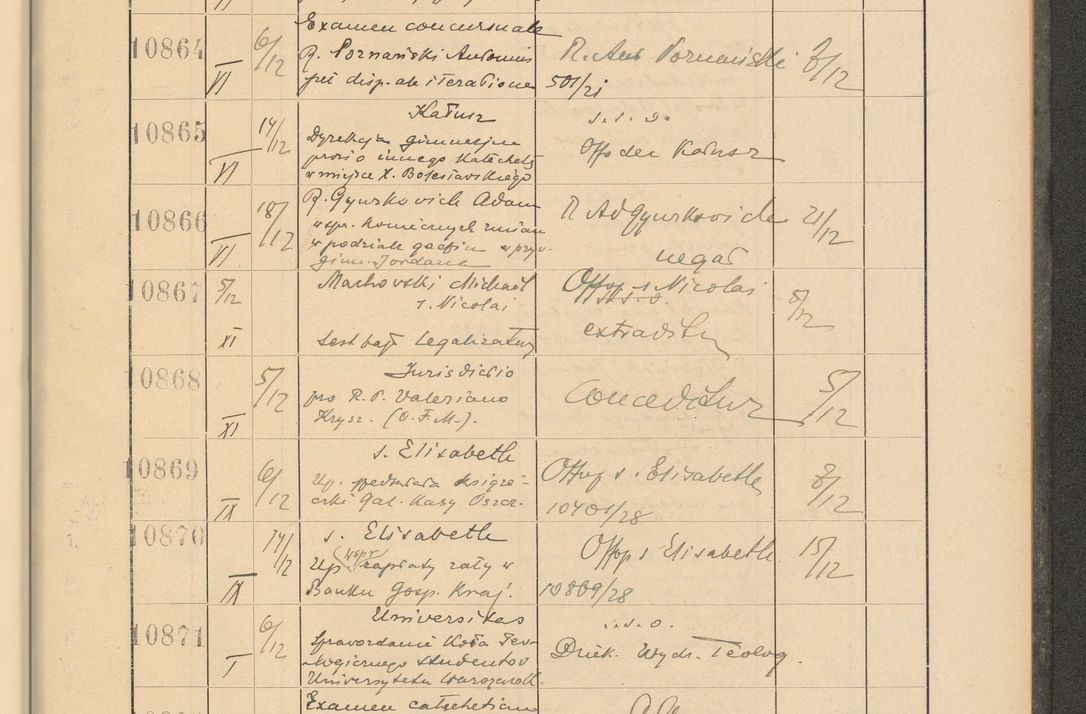 10864 VI 6/12 Examen concursuale
R. Poznański Antonius
pet disp. ab iteratione
R. Ant Poznański 7/12
501/21
10865 VI 14/12 Kałusz
Dyrekcja gimnazjum
prosi innego Katechetę
w miejsce X. Bolesławskiego
s. s. o.
Offo dec Kałusz
10866 VI 18/12 R. Gyurkovich Adam
wspr. koniecznych zmian
w podziale godzin w pryw.
gimn. Jordana
R Ad Gyurkovich 21/12
negat
10867 XI 5/12 Machovski Michael
s. Nicolai
test bapt legalizatur
Offop s. Nicolai
s. s. o.
extraditur 5/12
10868 XI 5/12 Jurisdictio
pro R. P. Valeriano
Krysz. (O.F.M.).
Conceditur 5/12
10869 IX 6/12 s. Elisabeth
Up. podjęcia książe-
czki Gal. Kasy Oszcz.
Offop s. Elisabeth 7/12
10401/28
10870 IX 14/12 s. Elisabeth
Up (wspr) zapłaty raty w
Banku Gosp. Kraj.
Offop s Elisabeth 15/12
10869/28
10871 I 6/12 Universitas
Sprawozdanie Koła Teo-
logicznego studentów
Uniwersytetu Warszawsk.
s. s. o.
Dziek. Wydz. Teolog.
Examen catechetican